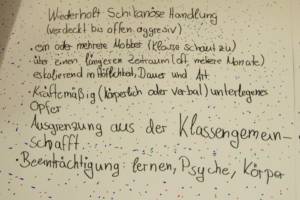 Wiederholt Schikanöse Handlung
(verdeckt bis offen aggresiv)
• ein oder mehrere Mobber (Klasse schaut zu)
• über einen längeren Zeitraum (oft mehrere Monate)
eskalierend in Häuflichkeit, Dauer und Art
• Kräftemäßig (körperlich oder verbal) unterlegenes
Opfer
Ausgrenzung aus der Klassengemein-
schafft
• Beeinträchtigung: lernen, Psyche, Körper